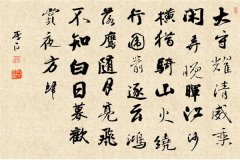 太守耀清威乘
閑弄晚暉江沙
橫獵騎山火繞
行圍箭逐云鴻
落鷹隨月兔飛
不知白日暮歡
賞夜方歸